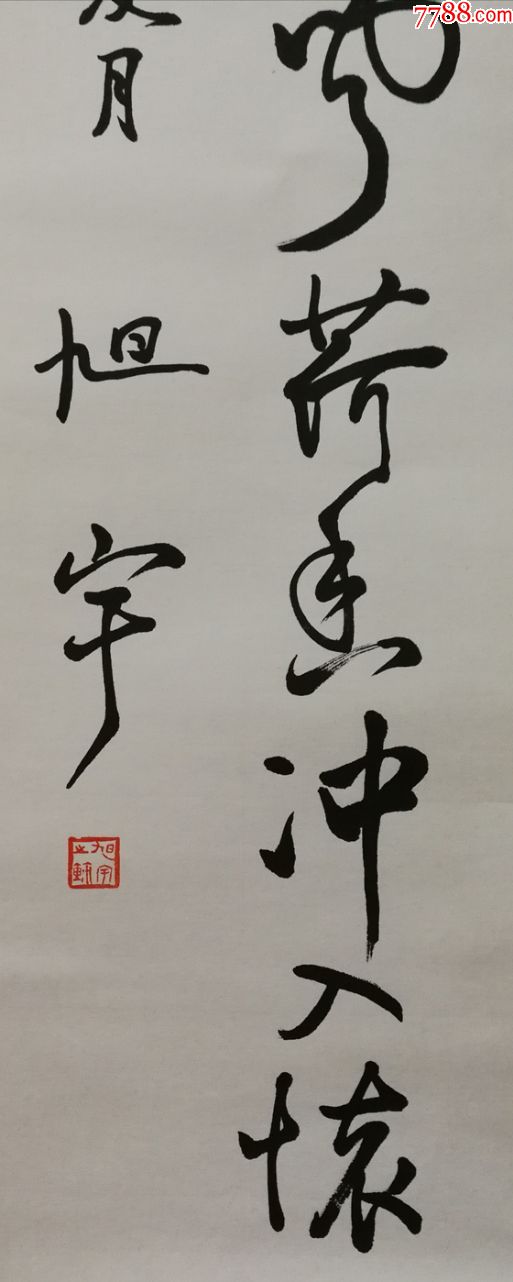 7788.com
荷香冲入懷
月 旭宇
旭宇之鉨